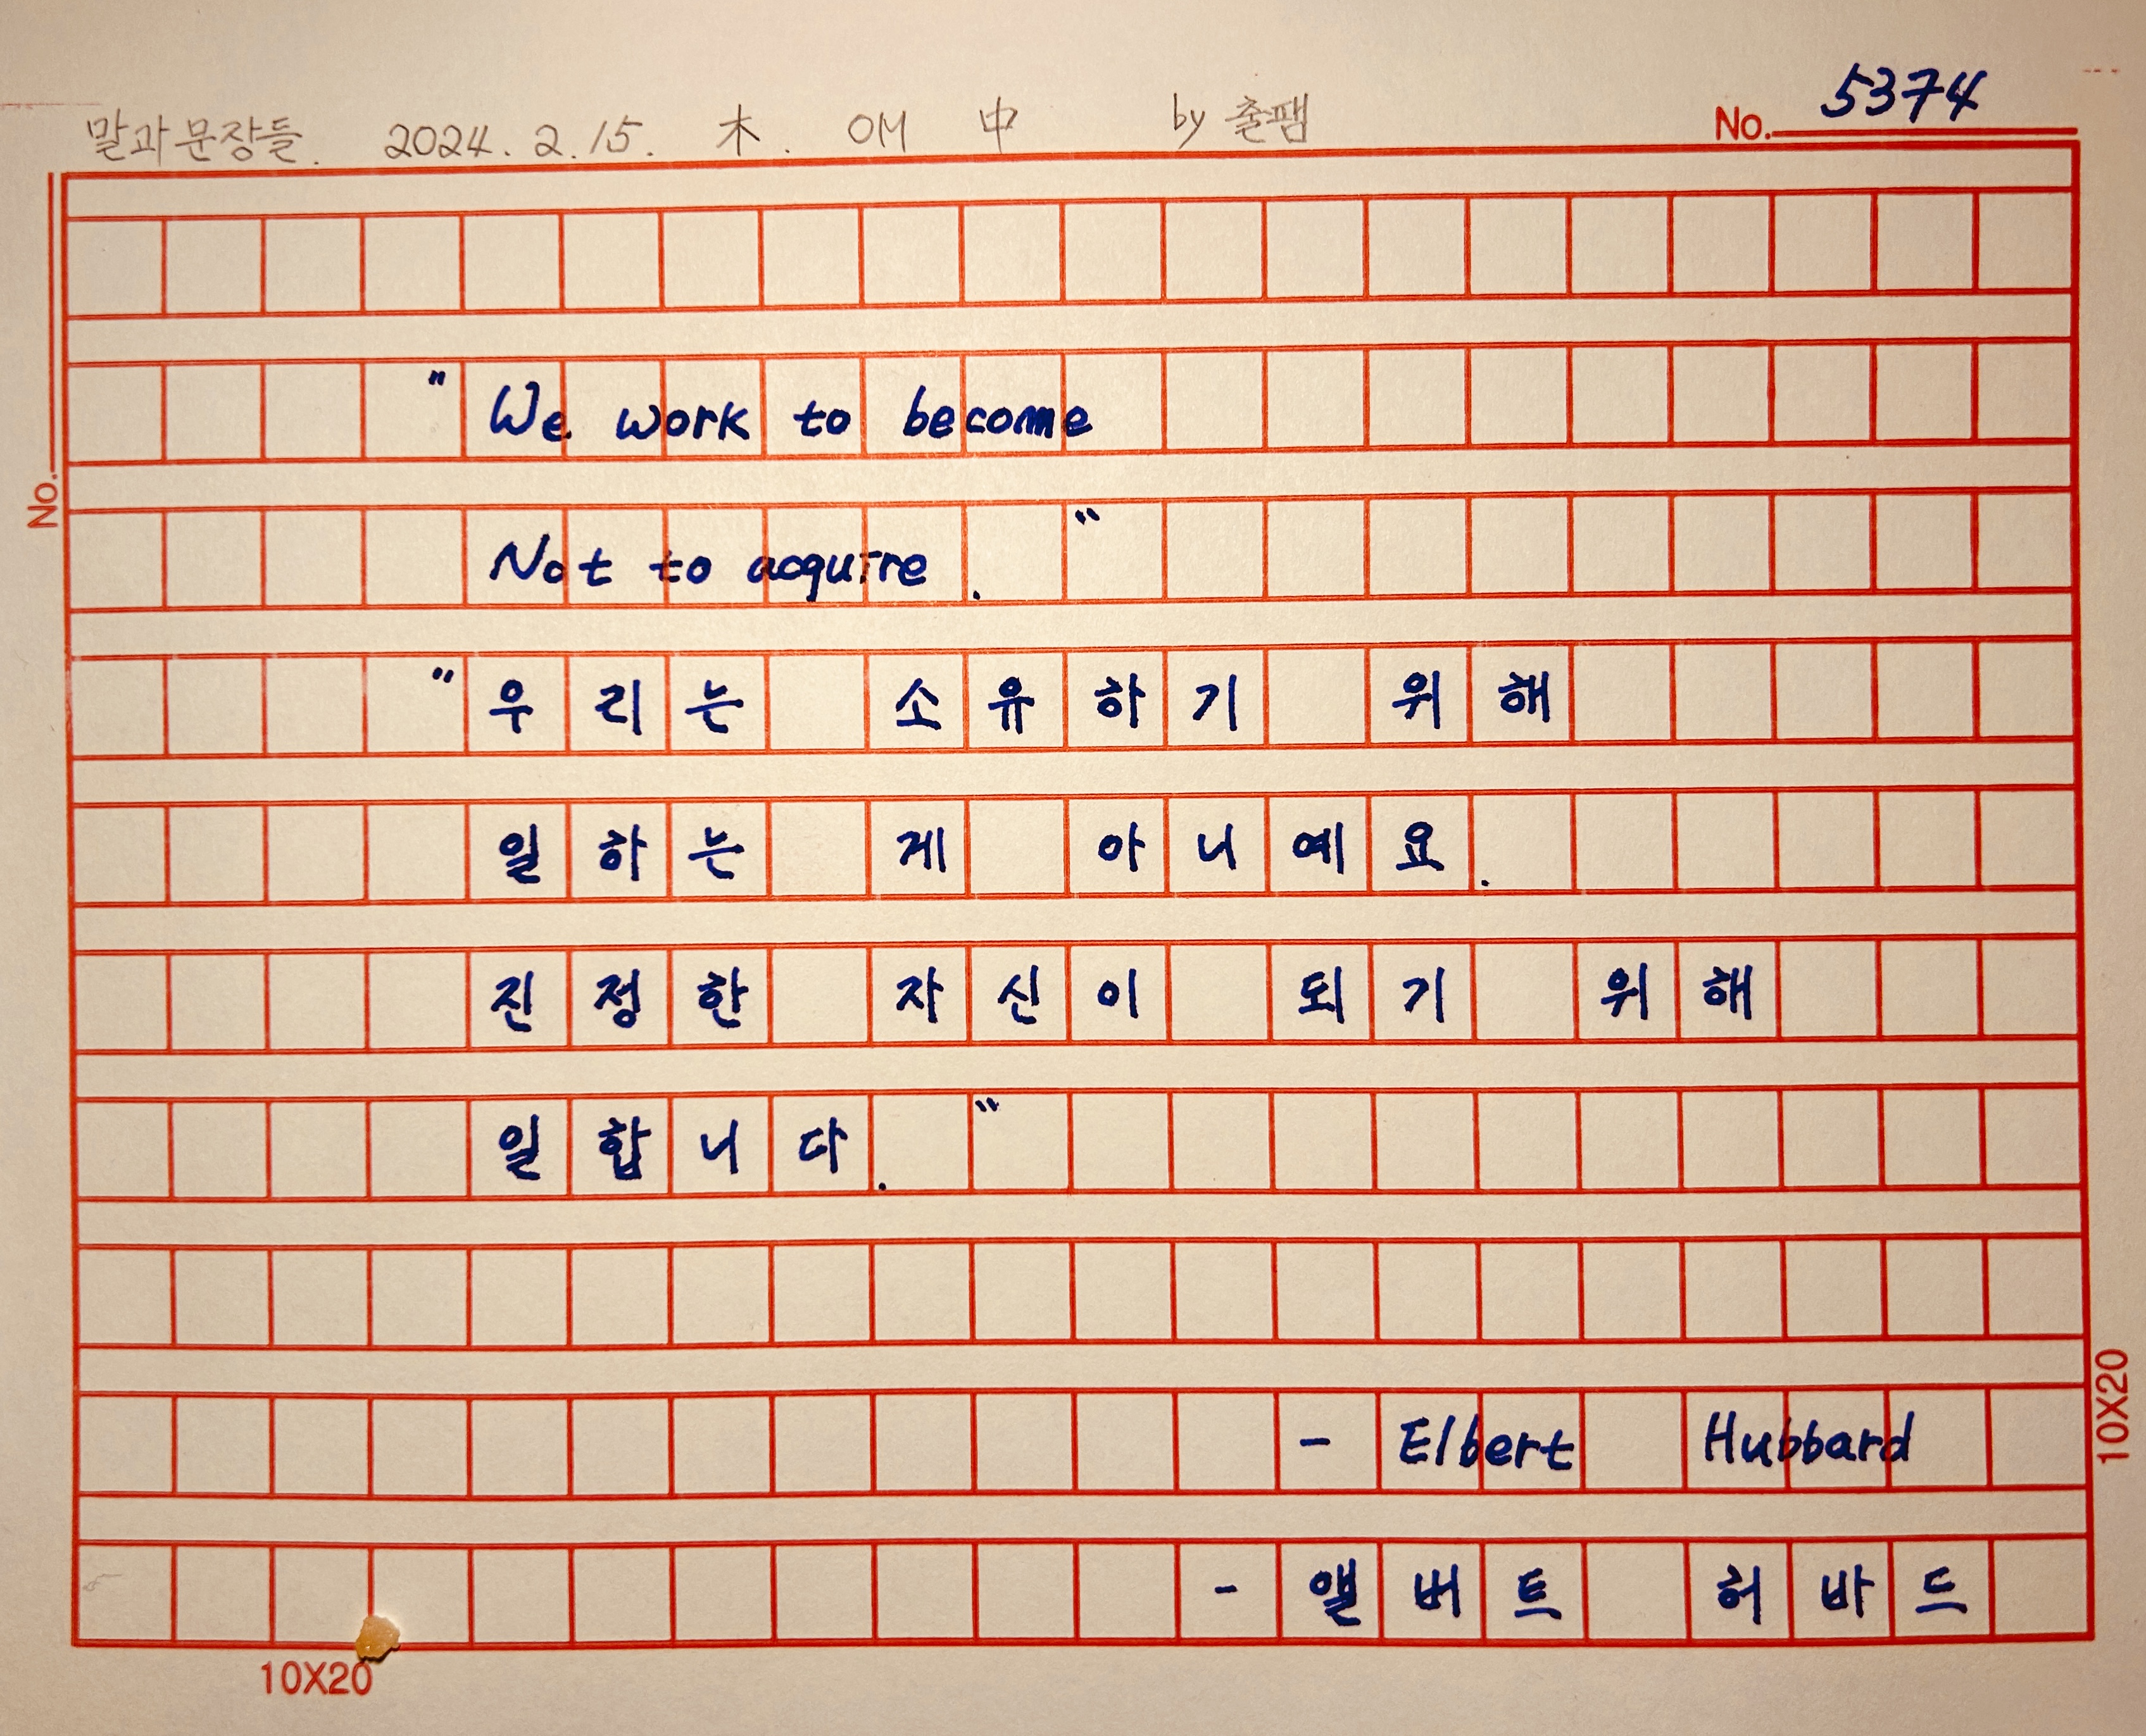 말과문장들. 2024. 2. 15. 木. OM 中 by 출팸
No. 5374
No.
" We work to become
Not to acquire. "
" 우리는 소유하기 위해
일하는 게 아니예요.
진정한 자신이 되기 위해
일합니다. "
- Elbert Hubbard
- 앨버트 허바드
10X20
10X20